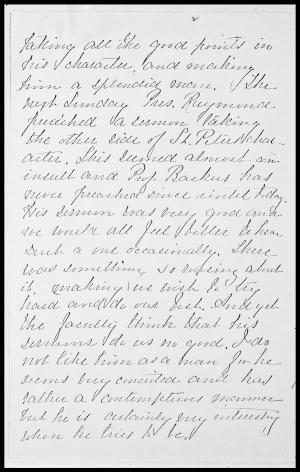 2
taking all the good points in
his character, and making
him a splendid man. The
next Sunday Pres. Raymond
preached a sermon taking
the other side of St. Peter's char-
acter. This seemed almost an
insult and Prof. Backus has
never preached since until today.
His sermon was very good and
we would all feel better to hear
such a one occasionally. There
was something so rousing about
it, making us wish to try
hard and do our best. And yet
the faculty think that his
sermons do us no good. I do
not like him as a man for he
seems very conceited and has
rather a contemptuous manner
but he is certainly very interesting
when he tries to be.